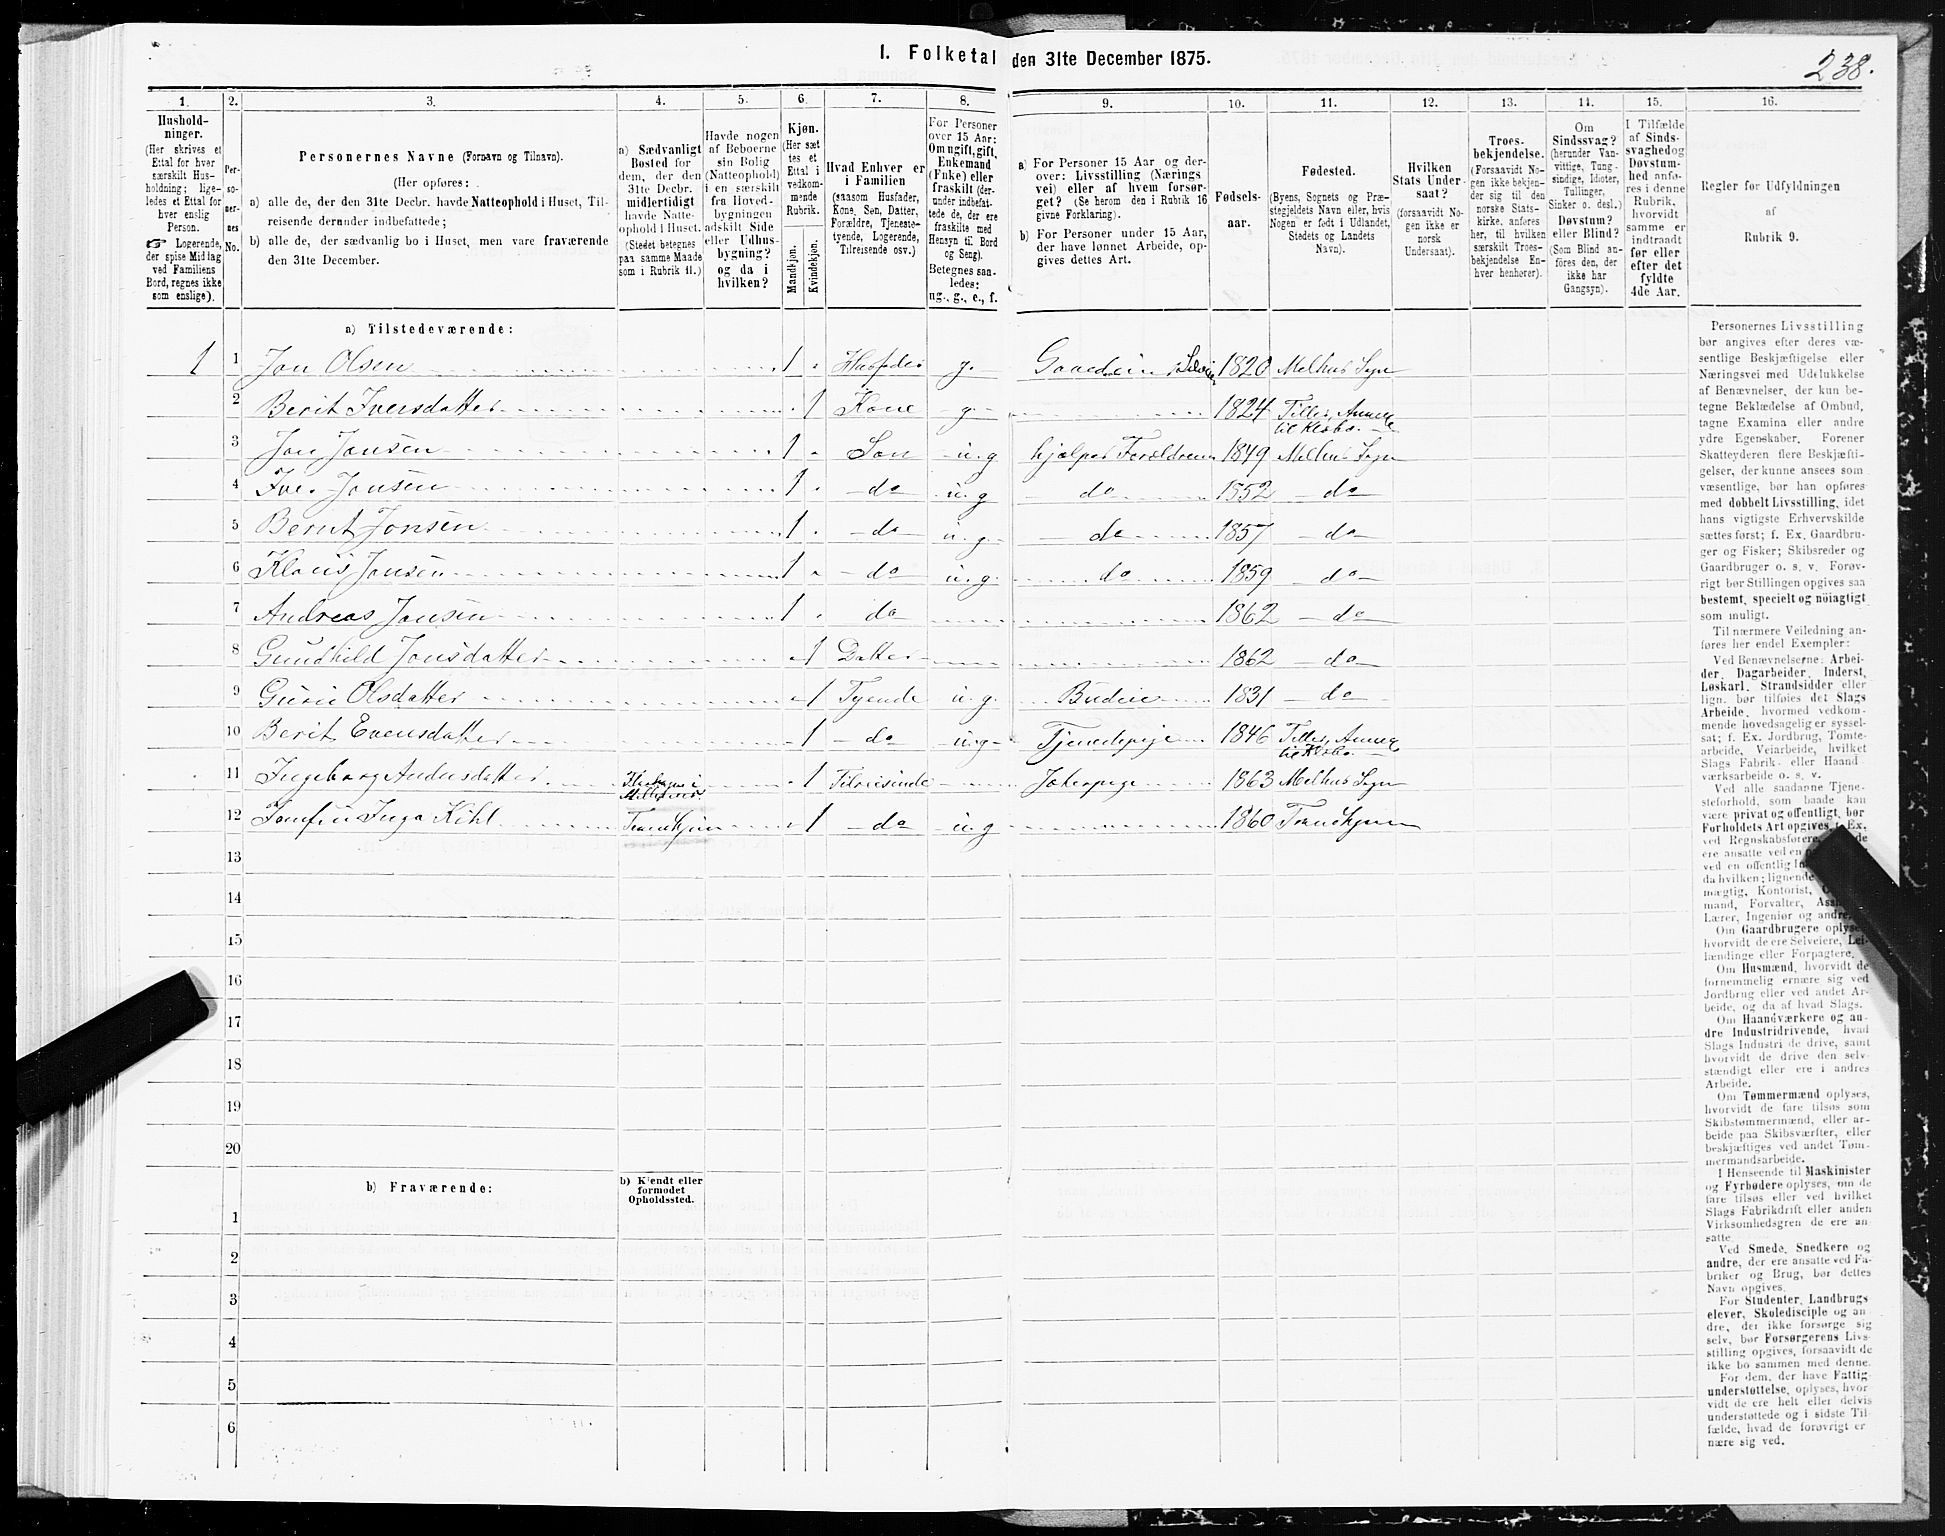 238.
I. Folketal den 31te December 1875.
1. 2. 3. 4. 5. 6. 7. 8. 9. 10. 11. 12. 13. 14. 15. 16.
Hushold-
ninger.
(Her skrives et
Ettal for hver
særskilt Hus-
holdning; lige-
ledes et Ettal for
hver enslig
Person.
☞ Logerende,
der spise Middag
ved Familiens
Bord, regnes ikke
som enslige).
Per-
so-
ner-
nes
No.
Personernes Navne (Fornavn og Tilnavn).
(Her opføres:
a) alle de, der den 31te Decbr. havde Natteophold i Huset, Til-
reisende derunder indbefattede;
b) alle de, der sædvanlig bo i Huset, men vare fraværende
den 31te December.
a) Sædvanligt
Bosted for
dem, der den
31te Decbr.
midlertidigt
havde Natte-
ophold i Huset.
(Stedet betegnes
paa samme Maade
som i Rubrik 11.)
Havde nogen
af Beboerne
sin Bolig
(Natteophold)
i en særskilt
fra Hoved-
bygningen
adskilt Side
eller Udhus-
bygning?
og da i
hvilken?
Kjøn.
(Her sæt-
tes et
Ettal i
vedkom-
mende
Rubrik.
Mandkjøn.
Kvindekjøn.
Hvad Enhver er
i Familien
(saasom Husfader,
Kone, Søn, Datter,
Forældre, Tjeneste-
tyende, Logerende,
Tilreisende osv.)
For Personer
over 15 Aar:
Om ugift, gift,
Enkemand
(Enke) eller
fraskilt (der-
under indbefat-
tede de, der ere
fraskilte med
Hensyn til Bord
og Seng).
Betegnes saa-
ledes:
ug., g., e., f.
a) For Personer 15 Aar og der-
over: Livsstilling (Nærings
vei) eller af hvem forsør-
get? (Se herom den i Rubrik 16
givne Forklaring).
b) For Personer under 15 Aar,
der have lønnet Arbeide, op-
gives dettes Art.
Fødsels-
aar.
Fødested.
(Byens, Sognets og Præ-
stegjeldets Navn eller, hvis
Nogen er født i Udlandet,
Stedets og Landets
Navn).
Hvilken
Stats Under-
saat?
(forsaavidt No-
gen ikke er
norsk
Undersaat).
Troes-
bekjendelse.
(Forsaavidt No-
gen ikke bekjen-
der sig til den
norske Stats-
kirke, anføres
her, til hvilken
særskilt Troes-
bekjendelse En-
hver henhører).
Om
Sindssvag?
(herunder Van-
vittige, Tung-
sindige, Idioter,
Tullinger,
Sinker o. desl.)
Døvstum?
eller Blind?
(Som Blind an-
føres den, der
ikke har
Gangsyn).
I Tilfælde
af Sinds-
svaghed og
Døvstum-
hed anfø-
res i denne
Rubrik,
hvorvidt
samme er
indtraadt
før eller
efter det
fyldte
4de Aar.
Regler for Udfyldningen
af
Rubrik 9.
a) Tilstedeværende:
1 1 Jon Olsen 1 Husfader g. Gaardeier Selveier 1820 Melhus Sogn
2 Berit Iversdatter 1 Kone g. 1824 Tiller, Annex
til Klæbo.
3 Jon Jonsen 1 Søn u.g hjælper Forældrene 1849 Melhus Sogn
4 Iver Jonsen 1 do u.g do 1852 do
5 Bernt Jonsen 1 do u.g. do 1857 do
6 Klaus Jonsen 1 do u.g. do 1859 do
7 Andreas Jonsen 1 do 1862 do
8 Gundhild Jonsdatter 1 Datter 1862 do
9 Guru Olsdatter 1 Tyende u.g. Budeie 1831 do
10 Berit Evensdatter 1 do u.g. Tjenestepige 1846 Tiller, Annex
til Klæbo.
11 Ingeborg Andersdatter 1 Tilreisende 1863 Melhus Sogn
12 Inga Kihl Trondhjem 1 do u.g 1860 Trondhjem
13
14
15
16
17
18
19
20
b) Fraværende:
b) Kjendt eller
formodet
Opholdssted.
1
2
3
4
5
6
Personernes Livsstilling
bør angives efter deres væ-
sentlige Beskjæftigelse eller
Næringsvei med Udelukkelse
af Benævnelser, der kun be-
tegne Beklædelse af Ombud,
tagne Examina eller andre
ydre Egenskaber. Forener
Skatteyderen flere Beskjæfti-
gelser, der kunne ansees som
væsentlige, bør han opføres
med dobbelt Livsstilling, idet
hans vigtigste Erhvervskilde
sættes først; f. Ex. Gaardbru-
ger og Fisker; Skibsreder og
Gaardbruger o. s. v. Forøv-
rigt bør Stillingen opgives saa
bestemt, specielt og nöiagtigt
som muligt.
Til nærmere Veiledning an-
føres her endel Exempler:
Ved Benævnelserne: Arbei-
der, Dagarbeider, Inderst,
Løskarl, Strandsidder eller
lign. bør tilføies det Slags
Arbeide, hvormed vedkom-
mende hovedsagelig er syssel-
sat; f. Ex. Jordbrug, Tomte-
arbeide, Veiarbeide, hvilket
Slags Fabrik- eller Haand
værksarbeide o. s. v.
Ved alle saadanne Tjene-
steforhold, som baade kan
være privat og offentlig, bør
Forholdets Art opgives, f. Ex.
ved Regnskabsførere,
ere ansatte ved en
ved en offentlig
da hvilken; lignende
mægtig, Kontorist,
mand, Forvalter,
Lærer, Ingeniør og andre.
Om Gaardbrugere oplyses,
hvorvidt de ere Selveiere, Lei-
lændinge eller Forpagtere.
Om Husmænd, hvorvidt de
fornemmelig ernære sig ved
Jordbrug eller ved andet Ar-
beide, og da af hvad Slags.
Om Haandværkere og an-
dre Industridrivende, hvad
Slags Industri de drive, samt
hvorvidt de drive den selv-
stændigt eller ere i andres
Arbeide.
Om Tømmermænd oplyses,
hvorvidt de fare tilsøs som
Skibstømmermænd, eller ar-
beide paa Skibsværfter, eller
beskjæftiges ved andet Tøm-
mermandsarbeide.
I Henseende til Maskinister
og Fyrbødere oplyses, om de
fare tilsøs eller ved hvilket
Slags Fabrikdrift eller anden
Virksomhedsgren de ere an
satte.
Ved Smede, Snedkere og
andre, der ere ansatte ved Fa-
briker og Brug, bør dettes
Navn opgives.
For Studenter, Landbrugs
elever, Skoledisciple og an
dre, der ikke forsørge sig
selv, bør Forsørgerens Livs-
stilling opgives, forsaavidt de
ikke bo sammen med denne.
For dem, der have Fattig-
understøttelse, oplyses, hvor
vidt de ere helt eller delvis
understøttede og i sidste Til-
fælde, hvad de forøvrigt er
nære sig ved.